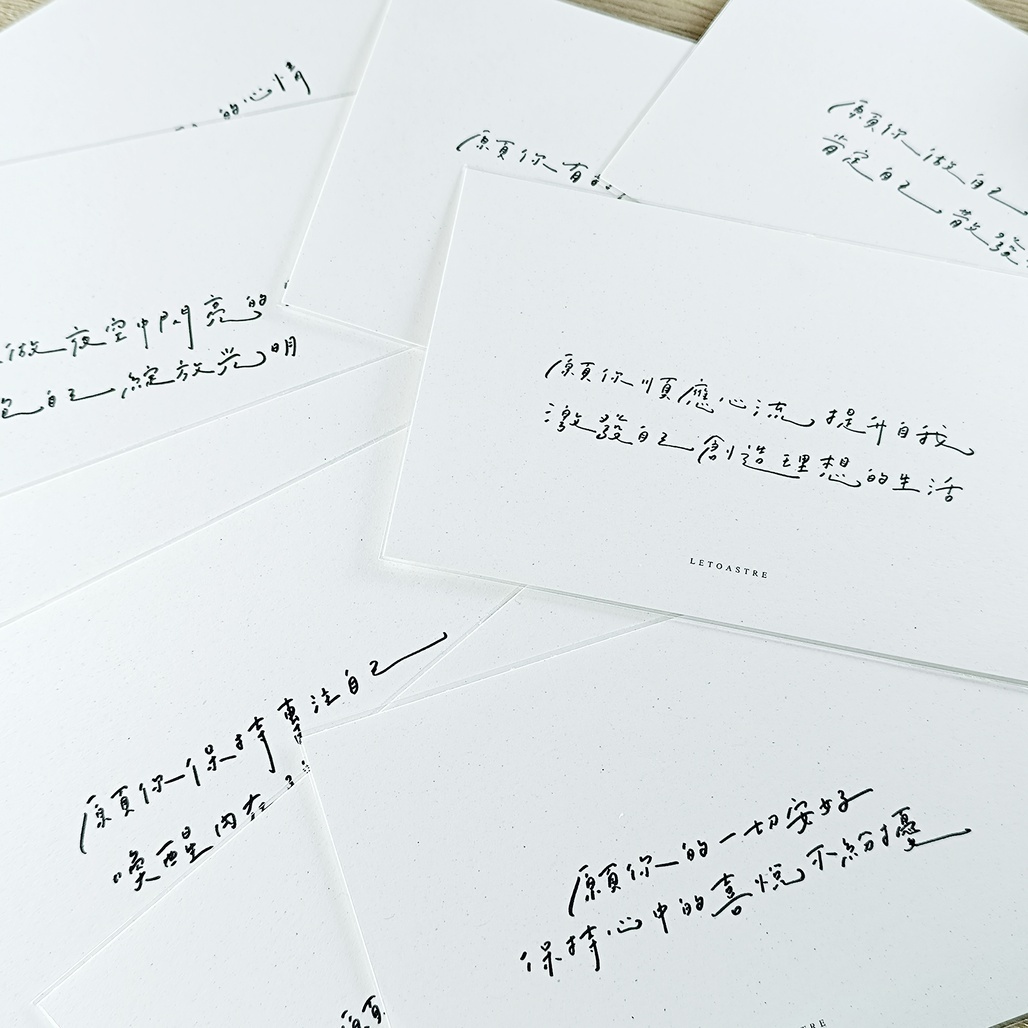 的心情
願你有
願你做自己
肯定自己 散發
做夜空中閃亮的
自己 綻放光明
願你順應心流 提升自我
激發自己 創造理想的生活
LETOASTRE
願你保持專注自己
喚醒內在
願你的一切安好
保持心中的喜悅 不紛擾
願
TRE